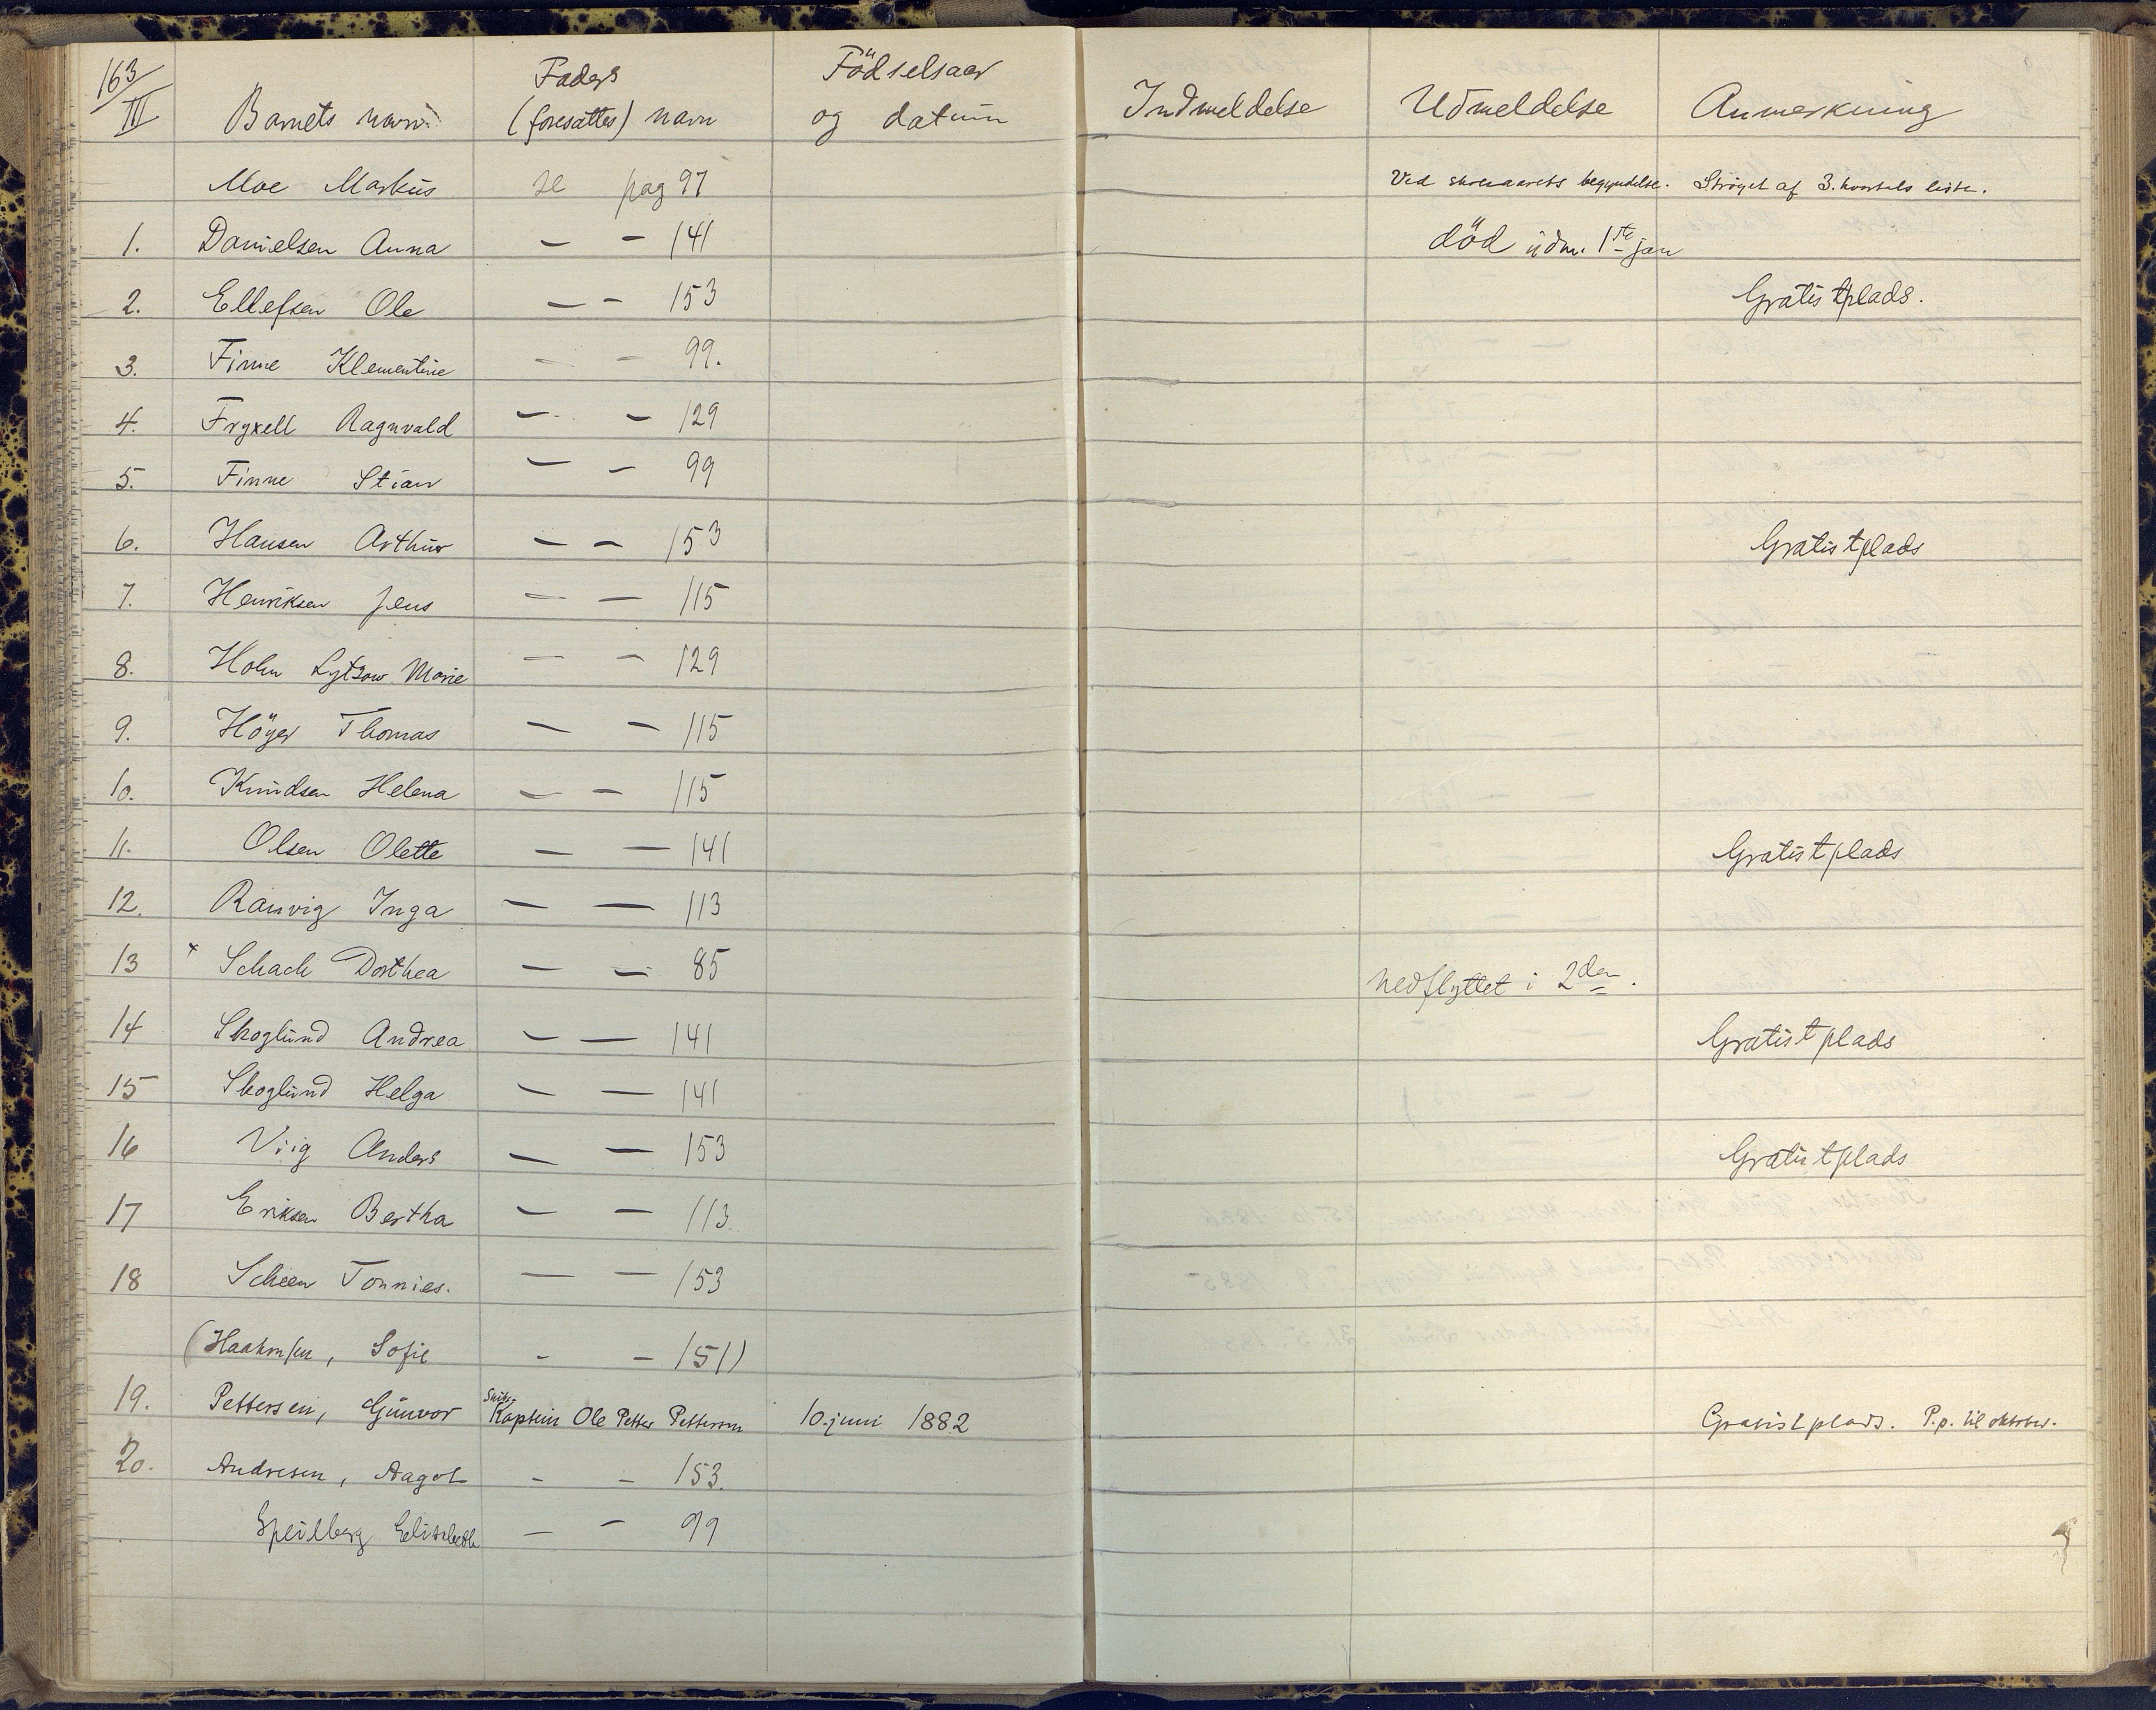 163/III Barnets navn Faders (foresattes) navn Födselsaar og datum Indmeldelse Udmeldelse Anmerkning
Moe Markus se pag 97 Ved skoleaarets begyndelse. Strøget af 3. kvartals liste.
1. Danielsen Anna — — 141 död udm. 1ste jan
2. Ellefsen Ole — — 153 Gratistplads.
3. Finne Klementine — — 99.
4. Fryxell Ragnvald — — 129
5. Finne Stian — — 99
6. Hansen Arthur — — 153 Gratistplads
7. Henriksen Jens — — 115
8. Holm Lytzow Marie — — 129
9. Höyer Thomas — — 115
10. Knudsen Helena — — 115
11. Olsen Olette — — 141 Gratistplads
12. Ramvig Inga — — 113
13 x Schach Dorthea — — 85 nedflyttet i 2den.
14 Skoglund Andrea — — 141 Gratistplads
15 Skoglund Helga — — 141
16 Viig Anders — — 153 Gratistplads
17 Eriksen Bertha — — 113
18 Scheen Tonnies. — — 153
(Haakonsen, Sofie - — 151)
19. Pettersen, Gunvor Skibs-Kaptein Ole Petter Pettersen 10. juni 1882 Gratistplads. P.p. til oktober.
20. Andresen, Aagot - - 153.
Speilberg Elisabeth — — 99